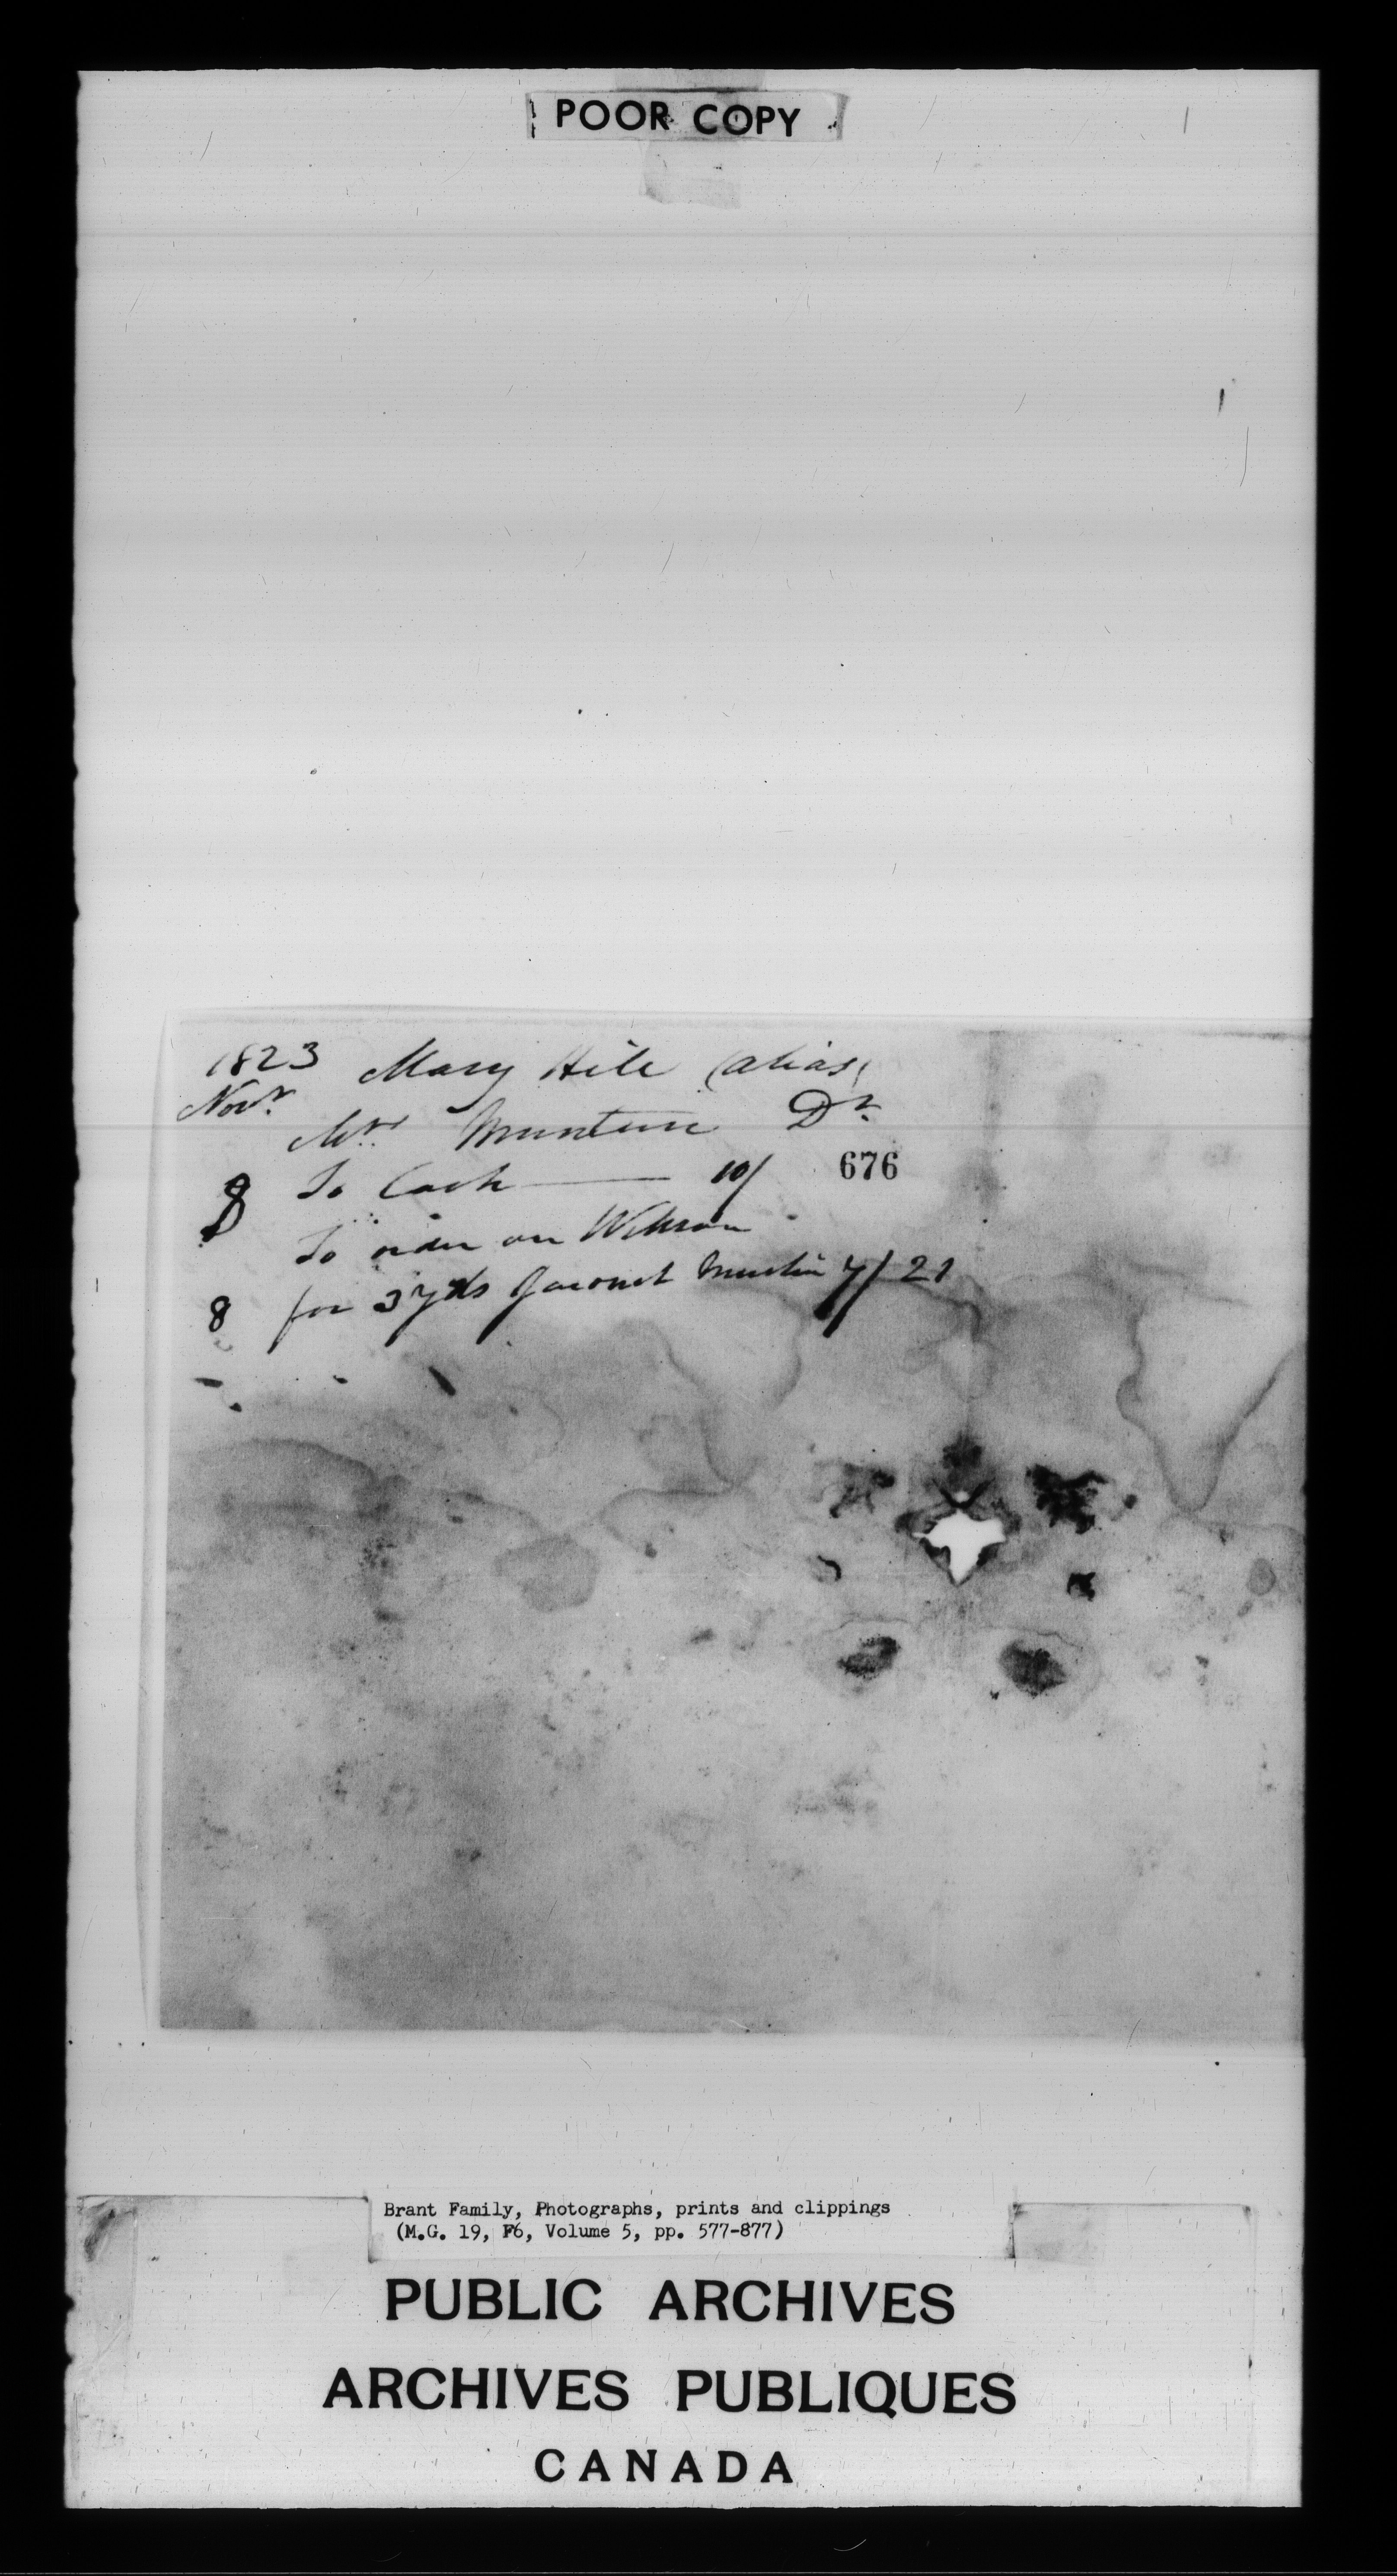 POOR COPY
1823 Mary Hill (alias,
Novr.
Mrs. Dr.
676
8 To Cash 10/
To order on Wilson
8 for 3 yds Jaconet Muslin 7/ 21
Brant Family, Photographs, prints and clippings
(M.G. 19, F6, Volume 5, pp. 577-877)
PUBLIC ARCHIVES
ARCHIVES PUBLIQUES
CANADA